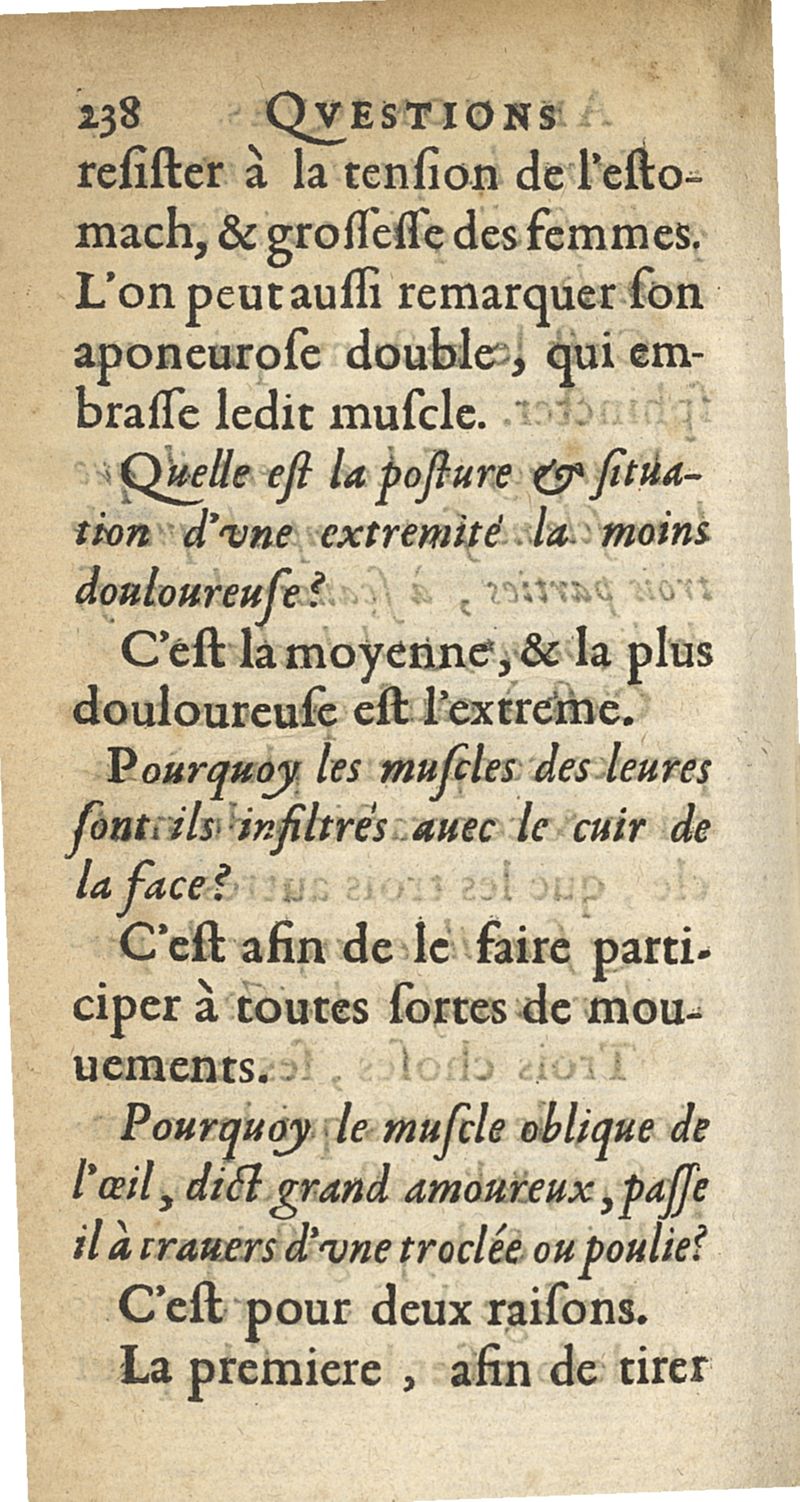 238 QVESTIONS
resiſter à la tenſion de l'eſto-
mach, & groſſeſſe des femmes.
L'on peut auſſi remarquer ſon
aponeuroſe double, qui em-
braſſe ledit muſcle.
Quelle eſt la poſture & ſitua-
tion d'vne extremité la moins
douloureuſe?
C'eſt la moyenne, & la plus
douloureuſe eſt l'extreme.
Pourquoy les muſcles des leures
ſont ils infiltrés auec le cuir de
la face?
C'eſt afin de le faire parti-
ciper à toutes ſortes de mou-
uements.
Pourquoy le muſcle oblique de
l'œil, dict grand amoureux, paſſe
il à trauers d'vne troclée ou poulie?
C'eſt pour deux raiſons.
La premiere, afin de tirer